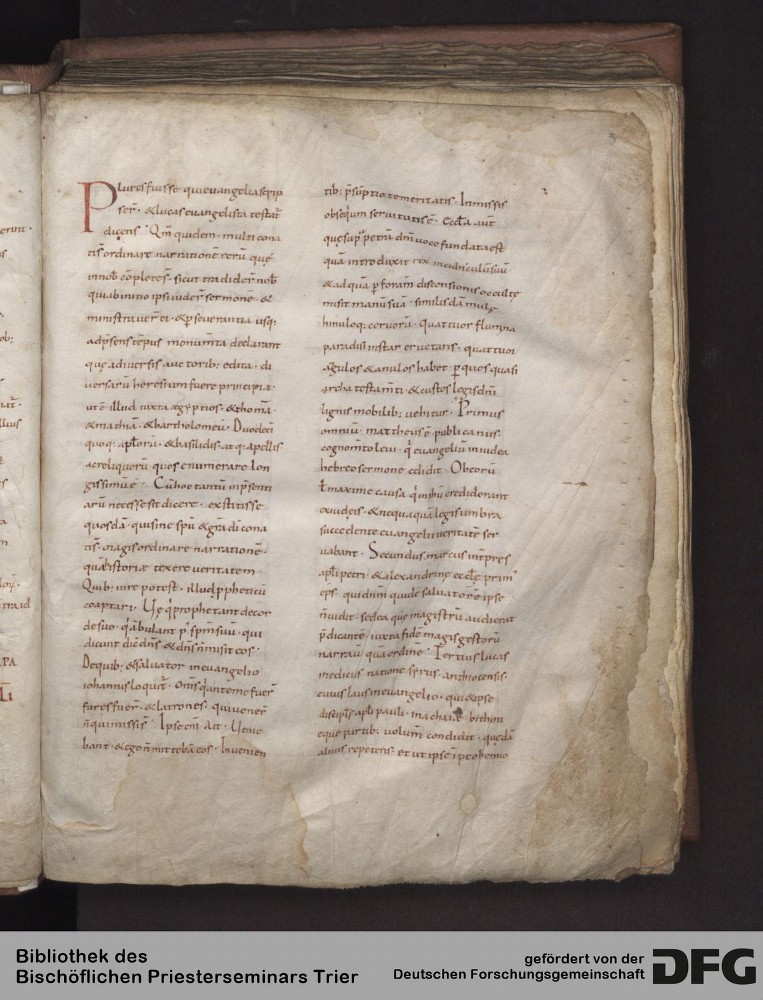 Plures fuisse qui euangelia scrip
serꝉ · & lucas euangelista testat̄
dicens Qm̄ quidem · multi cona
ti s̄ ordinare narrationē rerū quę
in nob̄ cōpletę s̄ · sicut tradider̄ nob̄
qui ab initio ipsi uider̄ sermonē · &
ministrauer̄ ei · & p̱seuerantia usq;
ad p̄sens tēpus monum̄ta declarant
quę a diuersis auctorib; edita · di
uersarū heresium fuere principia ·
ut ē illud iuxta ægyptios · & thomā ·
& mathiā · & bartholomeū · Duodeci
quoq; apl̄orū · & basilidis · atq; apellis
ac reliquorū quos enumerare lon
gissimū ē · Cū hoc tantū inp̄senti
arū necesse sit dicere · extitisse
quosdā · qui sine sp̄u & gr̄a dī cona
ti s̄ · magis ordinare narrationē ·
quā historiæ texere ueritatem ·
Quib; iure potest · illud p̱pheticū
coaptari · Uę q̇ prophetant de cor
de suo · q̇ ābulant p̱ sp̄m suū · qui
dicunt dic̄ dn̄s · & dn̄s ñ misit eos ·
De quib; & saluator in euangelio
iohannis loquit̄ · Om̄s q̇ ante me fuer̄
fures fuer̄ · & latrones · qui uener̄
ñ qui missi s̄ · Ipse eni ait · Uenie
bant · & ego ñ mittebā eos · In uenien
tib; p̄sūptio temeritatis · In missis
obseq̇um seruitutis ē · Eccl̄a aut̄
quę sup̱ petrā dn̄i uoce fundata est
quā introduxit rex in cubiculū suū
& ad quā p̱ foram̄ discensionis occultę
misit manū suā · similis dāmulę
hinuloq; ceruorū · quattuor flumina
paradisi instar eructans · quattuor
āgulos & anulos habet · p̱ quos quasi
archa testam̄ti · & custos legis dn̄i
lignis mobilib; uehitur · Primus
omniū · mattheus ē publicanus
cognom̄to leui · q̇ euangeliū in iudea
hebreo sermone edidit · Ob eorū
ł maxime causa q̇ in ih̄m crediderant
ex iudęis · & nequaquā legis umbra
succedente euangelii ueritatē ser
uabant · Secundus marcus int̄pres
apl̄i petri · & alexandrinę eccl̄ę prim'
ep̄s · qui dn̄m quidē saluatorē ipse
ñ uidit · sed ea quę magistrū audierat
p̄dicante · iuxta fidē magis gestorū
narrau̇ quā ordinē · Tertius lucas
medicus natione syrus · anthiocensis ·
cuius laus in euangelio · qui & ipse
discipl̄s apl̄i pauli · in achaiæ bithini
eque partib; volum̄ condidit · quędā
altius repetens · et ut ipse i prohemio
Bibliothek des
Bischöflichen Priesterseminars Trier
gefördert von der
Deutschen Forschungsgemeinschaft
DFG